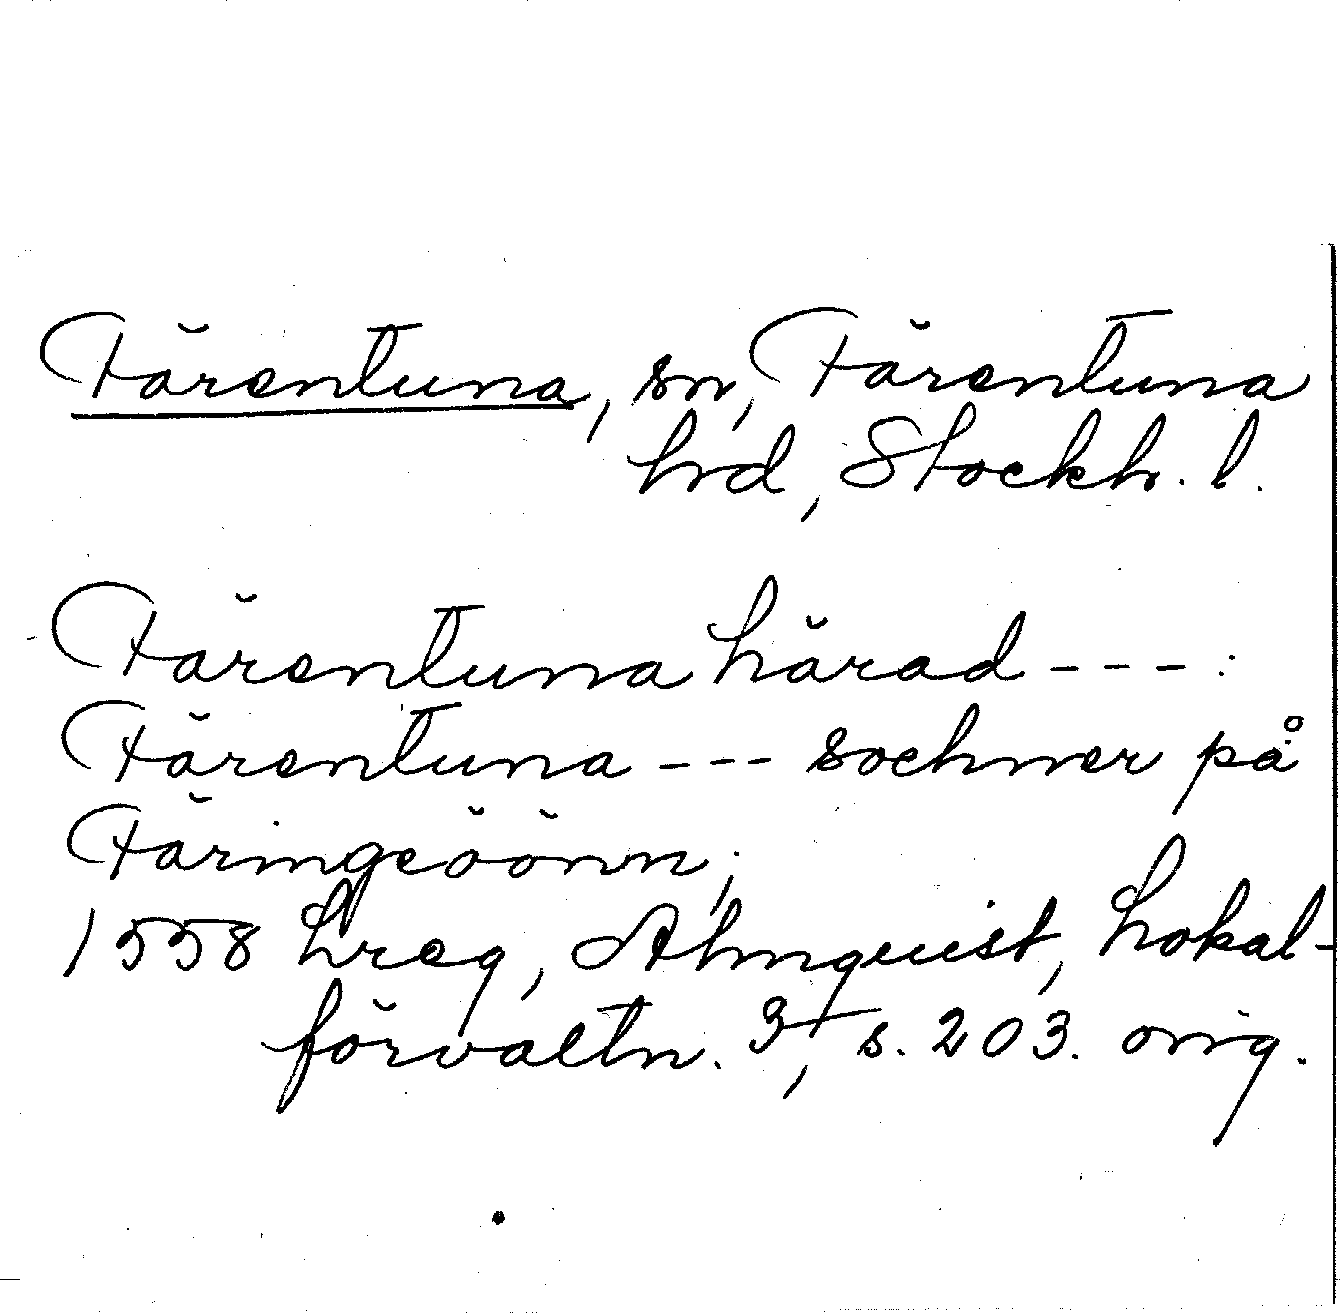 Färentuna, sn, Färentuna
hrd, Stockh. l.
Färentuna härad - - - :
Färentuna - - - sochner på
Färingeöönn;
1558 hreg, Almquist, Lokal-
förvaltn. 3, s. 203. orig.